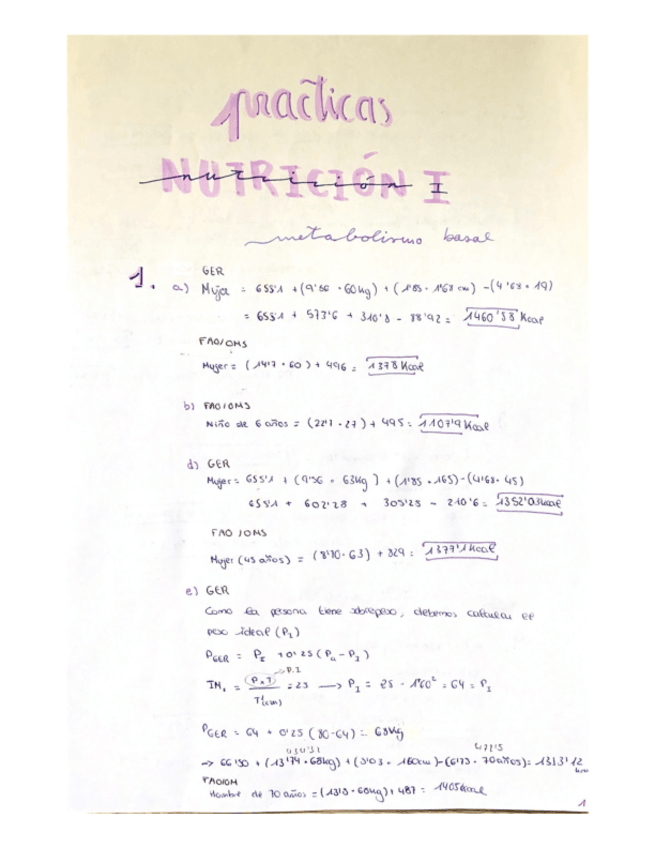 practicas
NUTRICIÓN I
nutrición
metabolismo basal
1. a) GER
Mujer = 655'1 + (9'56 · 60kg) + (1'85 · 168 cm) - (4'68 · 19)
= 655'1 + 573'6 + 310'8 - 88'92 = 1460'58 Kcal
FAO/OMS
Mujer = (14'7 · 60) + 496 = 1378 Kcal
b) FAO/OMS
Niño de 6 años = (22'7 · 27) + 495 = 1107'9 Kcal
d) GER
Mujer = 655'1 + (9'56 · 63Kg) + (1'85 · 165) - (4'68 · 45)
655'1 + 602'28 + 305'25 - 210'6 = 1352'03 kcal
FAO/OMS
Mujer (45 años) = (8'70 · 63) + 829 = 1377'1 Kcal
e) GER
Como la persona tiene sobrepeso, debemos calcular el
peso ideal (PI)
PGER = PI + 0'25 (Pa - PI)
P.I
= 25 → PI = 25 · 1'60² = 64 = PI
T²(cm)
PGER = 64 + 0'25 (80-64) = 68Kg
→ 66'50 + (13'74 · 68kg) + (5'03 · 160cm) - (6'75 · 70años) = 1333'12
FAO/OM
Hombre de 70 años = (13'5 · 68kg) + 487 = 1405 kcal
1